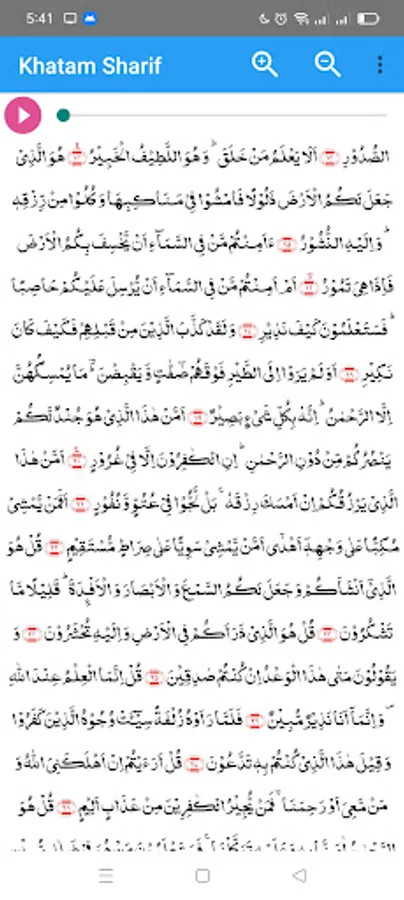 5:41
Khatam Sharif
الصُّدُوْرِ ۝۱۳ اَلَا يَعْلَمُ مَنْ خَلَقَ ؕ وَهُوَ اللَّطِيْفُ الْخَبِيْرُ ۝۱۴ هُوَ الَّذِىْ
جَعَلَ لَكُمُ الْاَرْضَ ذَلُوْلًا فَامْشُوْا فِىْ مَنَاكِبِهَا وَكُلُوْا مِنْ رِّزْقِهٖ
ؕ وَاِلَيْهِ النُّشُوْرُ ۝۱۵ ءَاَمِنْتُمْ مَّنْ فِى السَّمَآءِ اَنْ يَّخْسِفَ بِكُمُ الْاَرْضَ
فَاِذَا هِىَ تَمُوْرُ ۝۱۶ اَمْ اَمِنْتُمْ مَّنْ فِى السَّمَآءِ اَنْ يُّرْسِلَ عَلَيْكُمْ حَاصِبًا
ؕ فَسَتَعْلَمُوْنَ كَيْفَ نَذِيْرِ ۝۱۷ وَلَقَدْ كَذَّبَ الَّذِيْنَ مِنْ قَبْلِهِمْ فَكَيْفَ كَانَ
نَكِيْرِ ۝۱۸ اَوَلَمْ يَرَوْا اِلَى الطَّيْرِ فَوْقَهُمْ صٰٓفّٰتٍ وَّيَقْبِضْنَ ؔۘ مَا يُمْسِكُهُنَّ
اِلَّا الرَّحْمٰنُ ؕ اِنَّهٗ بِكُلِّ شَىْءٍۢ بَصِيْرٌ ۝۱۹ اَمَّنْ هٰذَا الَّذِىْ هُوَ جُنْدٌ لَّكُمْ
يَنْصُرُكُمْ مِّنْ دُوْنِ الرَّحْمٰنِ ؕ اِنِ الْكٰفِرُوْنَ اِلَّا فِىْ غُرُوْرٍ ۝۲۰ اَمَّنْ هٰذَا
الَّذِىْ يَرْزُقُكُمْ اِنْ اَمْسَكَ رِزْقَهٗ ۚ بَلْ لَّجُّوْا فِىْ عُتُوٍّ وَّنُفُوْرٍ ۝۲۱ اَفَمَنْ يَّمْشِىْ
مُكِبًّا عَلٰى وَجْهِهٖٓ اَهْدٰٓى اَمَّنْ يَّمْشِىْ سَوِيًّا عَلٰى صِرَاطٍ مُّسْتَقِيْمٍ ۝۲۲ قُلْ هُوَ
الَّذِىْٓ اَنْشَاَكُمْ وَجَعَلَ لَكُمُ السَّمْعَ وَالْاَبْصَارَ وَالْاَفْئِدَةَ ؕ قَلِيْلًا مَّا
تَشْكُرُوْنَ ۝۲۳ قُلْ هُوَ الَّذِىْ ذَرَاَكُمْ فِى الْاَرْضِ وَاِلَيْهِ تُحْشَرُوْنَ ۝۲۴ وَ
يَقُوْلُوْنَ مَتٰى هٰذَا الْوَعْدُ اِنْ كُنْتُمْ صٰدِقِيْنَ ۝۲۵ قُلْ اِنَّمَا الْعِلْمُ عِنْدَ اللّٰهِ
۪ وَاِنَّمَآ اَنَا نَذِيْرٌ مُّبِيْنٌ ۝۲۶ فَلَمَّا رَاَوْهُ زُلْفَةً سِيْٓـَٔتْ وُجُوْهُ الَّذِيْنَ كَفَرُوْا
وَقِيْلَ هٰذَا الَّذِىْ كُنْتُمْ بِهٖ تَدَّعُوْنَ ۝۲۷ قُلْ اَرَءَيْتُمْ اِنْ اَهْلَكَنِىَ اللّٰهُ وَ
مَنْ مَّعِىَ اَوْ رَحِمَنَا ۙ فَمَنْ يُّجِيْرُ الْكٰفِرِيْنَ مِنْ عَذَابٍ اَلِيْمٍ ۝۲۸ قُلْ هُوَ